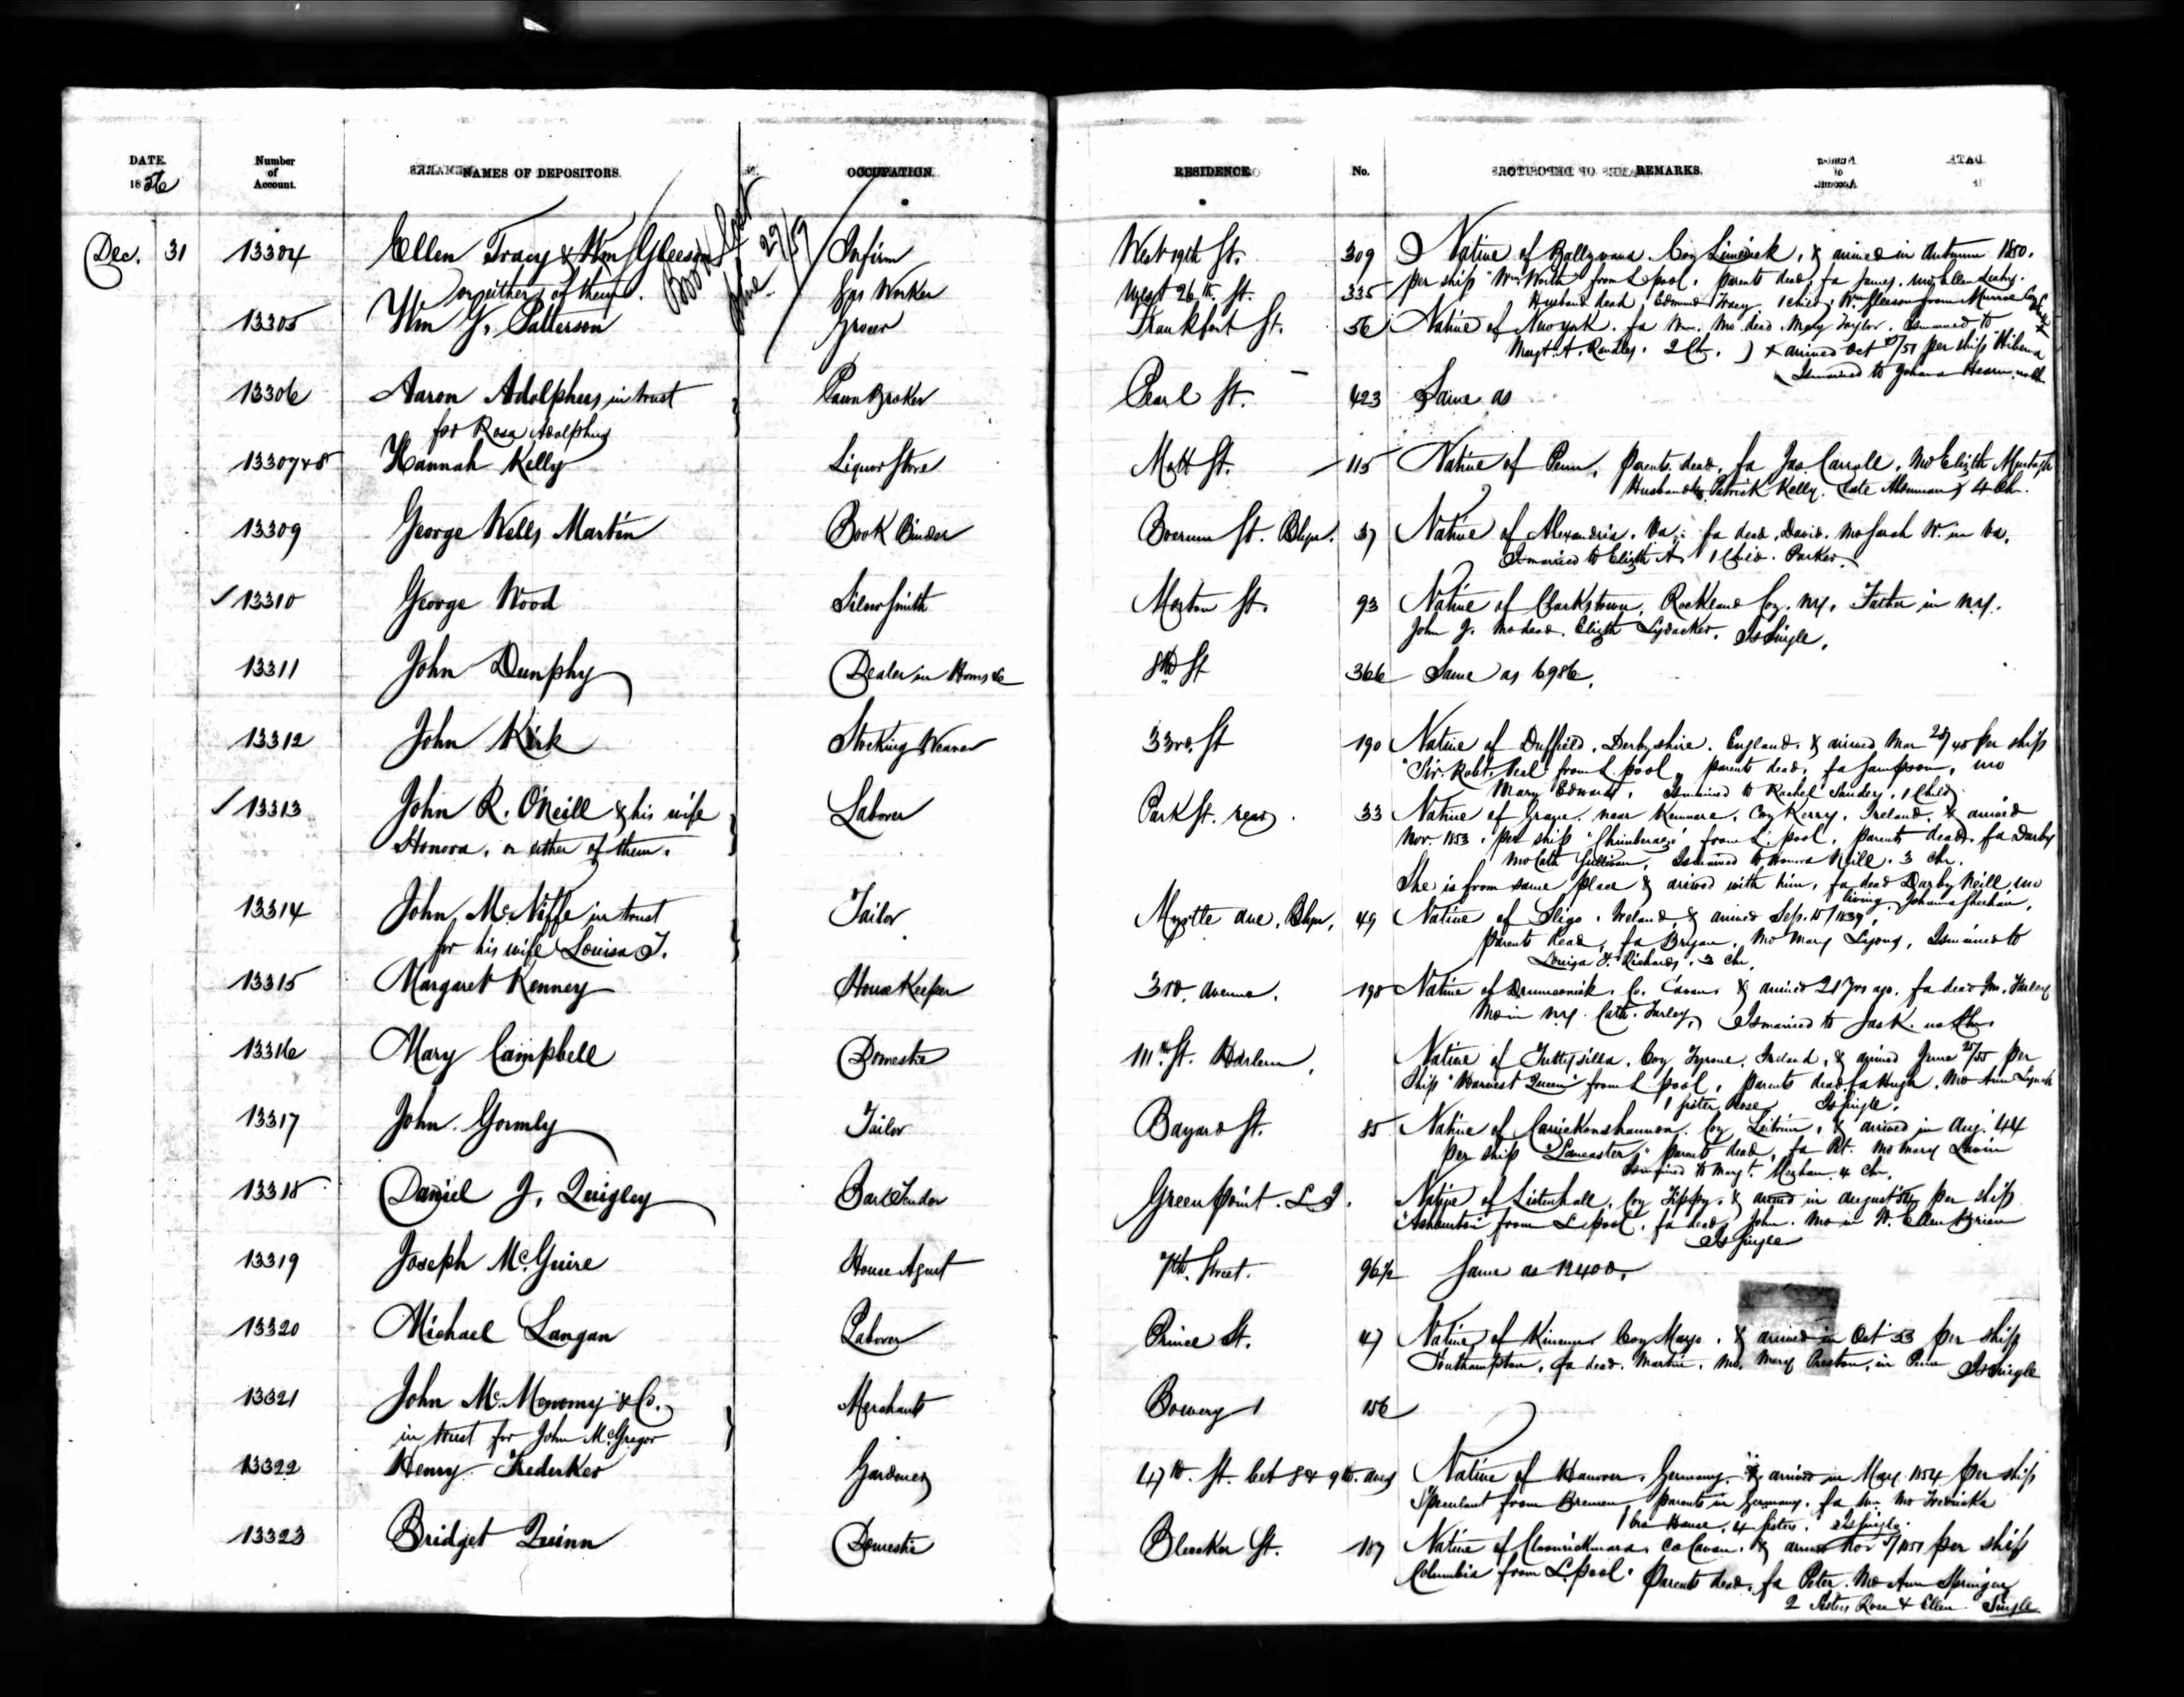 DATE. Number of Account. NAMES OF DEPOSITORS. OCCUPATION. RESIDENCE No. REMARKS.
1856
Dec. 31 13304 Ellen Tracy & Wm Gleeson Infirm West 19th St. 309 Native of Co. Limerick, & arrived in Autumn 1850.
or either of them. Gas Worker West 26th St. 335 per ship "Wm. North" from L.pool, parents dead, fa James, mo Ellen Leahy.
Book Lost June 29/59
Husband dead, Edmund Tracy 1 child, Wm. Gleeson from
13305 Wm G. Patterson Grocer Frankfort St. 56 Native of New York. fa Wm. Mo dead Mary Taylor. Is married to
Margt. A. 2 Ch. & arrived Oct /51 per ship
Is married to
13306 Aaron Adolphus, in trust Pawn Broker Pearl St. 423 Same as
for Rosa Adolphus
13307 & 8 Hannah Kelly Liquor Store Mott St. 115 Native of Penn, Parents dead, fa Jas Carroll, Mo Elizth
Husband Patrick Kelly, late Alderman, 4 Ch.
13309 George Wells Martin Book Binder Boerum St. Bklyn. 37 Native of Alexandria, Va. fa dead, David. Mo Sarah W. in Va.
Is married to Elizth A. 1 Child. Parker.
13310 George Wood Silver Smith Morton St. 93 Native of Clarkstown, Rockland Coy. N.Y. Father in N.Y.
John J. Mo dead. Elizth Lydecker. Is Single.
13311 John Dunphy Dealer in &c 8th St 366 Same as 6986.
13312 John Kirk Stocking Weaver 33rd. St 190 Native of Duffield, Derbyshire. England, & arrived Mar per ship
"Sir. Robt. Peel" from L.pool, parents dead, fa Sampson, mo
Mary Edward, Is married to Rachel Sanders, 1 Child
13313 John R. O'Neill & his wife Laborer Park St. rear 33 Native of near Kenmare, Coy Kerry, Ireland, & arrived
Honora, or either of them. Nov. 1853, per ship from L.pool, parents dead, fa Darby
mo Cath Sullivan, Is married to Honora Neill. 3 chr.
She is from same place & arrived with him, fa dead Darby Neill, mo
living Johanna Sheehan,
13314 John McNiffe in trust Tailor Myrtle ave, Bklyn, 49 Native of Sligo, Ireland, & arrived Sep. 15/1839,
for his wife Louisa J. parents dead, fa Bryan, Mo Mary Lyons, Is married to
Louisa J. Richards, 3 Chr.
13315 Margaret Kenney House Keeper 3rd. Avenue. 198 Native of Co. Cavan, & arrived 21 yrs ago. fa dead Farley
Mo in N.Y. Cath. Farley, Is married to Jas K. no Chr
13316 Mary Campbell Domestic 111th St. Harlem, Native of Coy Tyrone. Ireland, & arrived June 25/55 per
Ship "Harvest Queen" from L.pool, parents dead, fa Hugh, Mo Ann Lynch
1 sister Rose Is Single.
13317 John Gormly Tailor Bayard St. 85 Native of Carrickonshannon, Coy Leitrim, & arrived in Aug. 44
per ship "Lancaster," parents dead, fa Pat. Mo Mary Lavin
Is married to Margt. Meehan 4 Chr.
13318 Daniel J. Quigley Bar Tender Green point. L.I. Native of Coy Tippy, & arrived in August per ship
"Ashburton" from L.pool, fa dead, John. Mo in N. Ellen Brien
Is Single
13319 Joseph McGuire House Agent 7th. Street. 96½ Same as 12400.
13320 Michael Langan Laborer Prince St. 47 Native of Coy Mayo, & arrived in Oct 53 per ship
Southampton, fa dead. Martin. Mo. Mary Preston, in Penn Is Single
13321 John McMenomy & Co. Merchants Bowery 156
in trust for John McGregor
13322 Henry Frederker Gardener 47th. St. bet 8 & 9th. aves Native of Hanover, Germany, & arrived in May 1854 per ship
Speculant from Bremen parents in Germany, fa Mo Fredricka
1 bro 4 sisters. Is Single
13323 Bridget Quinn Domestic Bleecker St. 107 Native of Co Cavan, & arrived Nov /1851 per ship
Columbia from L.pool. Parents dead, fa Peter. Mo Ann Springer
2 Sisters Rose & Ellen Single